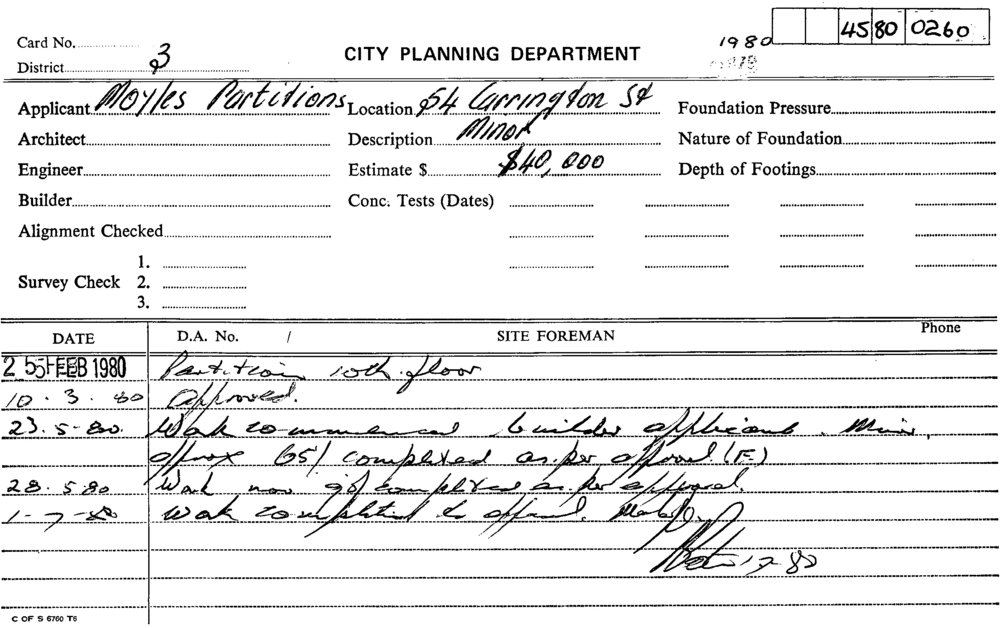 45 80 0260
1980
Card No.
District 3
CITY PLANNING DEPARTMENT
Applicant Moyles Partitions Location 54 Carrington St Foundation Pressure
Architect Description Minor Nature of Foundation
Engineer Estimate $ $40,000 Depth of Footings
Builder Conc. Tests (Dates)
Alignment Checked
Survey Check 1.
2.
3.
DATE D.A. No. / SITE FOREMAN Phone
25 FEB 1980 Partition 10th floor
10.3.80 Approved.
23.5-80. Work commenced builder applicant. Minor.
aprox 65% completed as per approval (F.)
28.5.80 Work now completed as per approval.
1-7-80 Work completed to approval.
C OF S 6760 T6